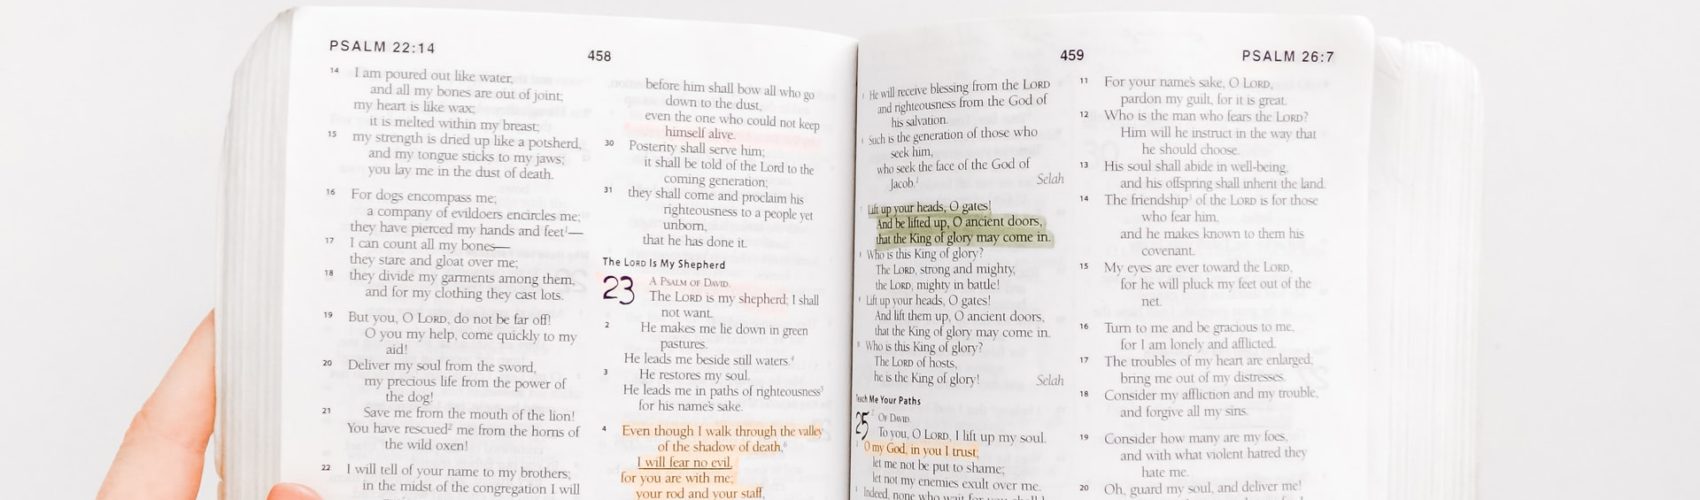 PSALM 22:14
458
14 I am poured out like water,
and all my bones are out of joint;
my heart is like wax;
it is melted within my breast;
15 my strength is dried up like a potsherd,
and my tongue sticks to my jaws;
you lay me in the dust of death.
16 For dogs encompass me;
a company of evildoers encircles me;
they have pierced my hands and feet—
17 I can count all my bones—
they stare and gloat over me;
18 they divide my garments among them,
and for my clothing they cast lots.
19 But you, O LORD, do not be far off!
O you my help, come quickly to my
aid!
20 Deliver my soul from the sword,
my precious life from the power of
the dog!
21 Save me from the mouth of the lion!
You have rescued² me from the horns of
the wild oxen!
22 I will tell of your name to my brothers;
in the midst of the congregation I will
before him shall bow all who go
down to the dust,
even the one who could not keep
himself alive.
30 Posterity shall serve him;
it shall be told of the Lord to the
coming generation;
31 they shall come and proclaim his
righteousness to a people yet
unborn,
that he has done it.
The LORD Is My Shepherd
23 A PSALM OF DAVID.
The LORD is my shepherd; I shall
not want.
2 He makes me lie down in green
pastures.
He leads me beside still waters.⁴
3 He restores my soul.
He leads me in paths of righteousness⁵
for his name's sake.
4 Even though I walk through the valley
of the shadow of death,⁶
I will fear no evil,
for you are with me;
your rod and your staff,
459
PSALM 26:7
He will receive blessing from the LORD
and righteousness from the God of
his salvation.
Such is the generation of those who
seek him,
who seek the face of the God of
Jacob.
Selah
Lift up your heads, O gates!
And be lifted up, O ancient doors,
that the King of glory may come in.
Who is this King of glory?
The LORD, strong and mighty,
the LORD, mighty in battle!
Lift up your heads, O gates!
And lift them up, O ancient doors,
that the King of glory may come in.
Who is this King of glory?
The LORD of hosts,
he is the King of glory!
Selah
Teach Me Your Paths
25 OF DAVID.
To you, O LORD, I lift up my soul.
O my God, in you I trust;
let me not be put to shame;
let not my enemies exult over me.
Indeed, none who wait for you shall
11 For your name's sake, O LORD,
pardon my guilt, for it is great.
12 Who is the man who fears the LORD?
Him will he instruct in the way that
he should choose.
13 His soul shall abide in well-being,
and his offspring shall inherit the land.
14 The friendship of the LORD is for those
who fear him,
and he makes known to them his
covenant.
15 My eyes are ever toward the LORD,
for he will pluck my feet out of the
net.
16 Turn to me and be gracious to me,
for I am lonely and afflicted.
17 The troubles of my heart are enlarged;
bring me out of my distresses.
18 Consider my affliction and my trouble,
and forgive all my sins.
19 Consider how many are my foes,
and with what violent hatred they
hate me.
20 Oh, guard my soul, and deliver me!